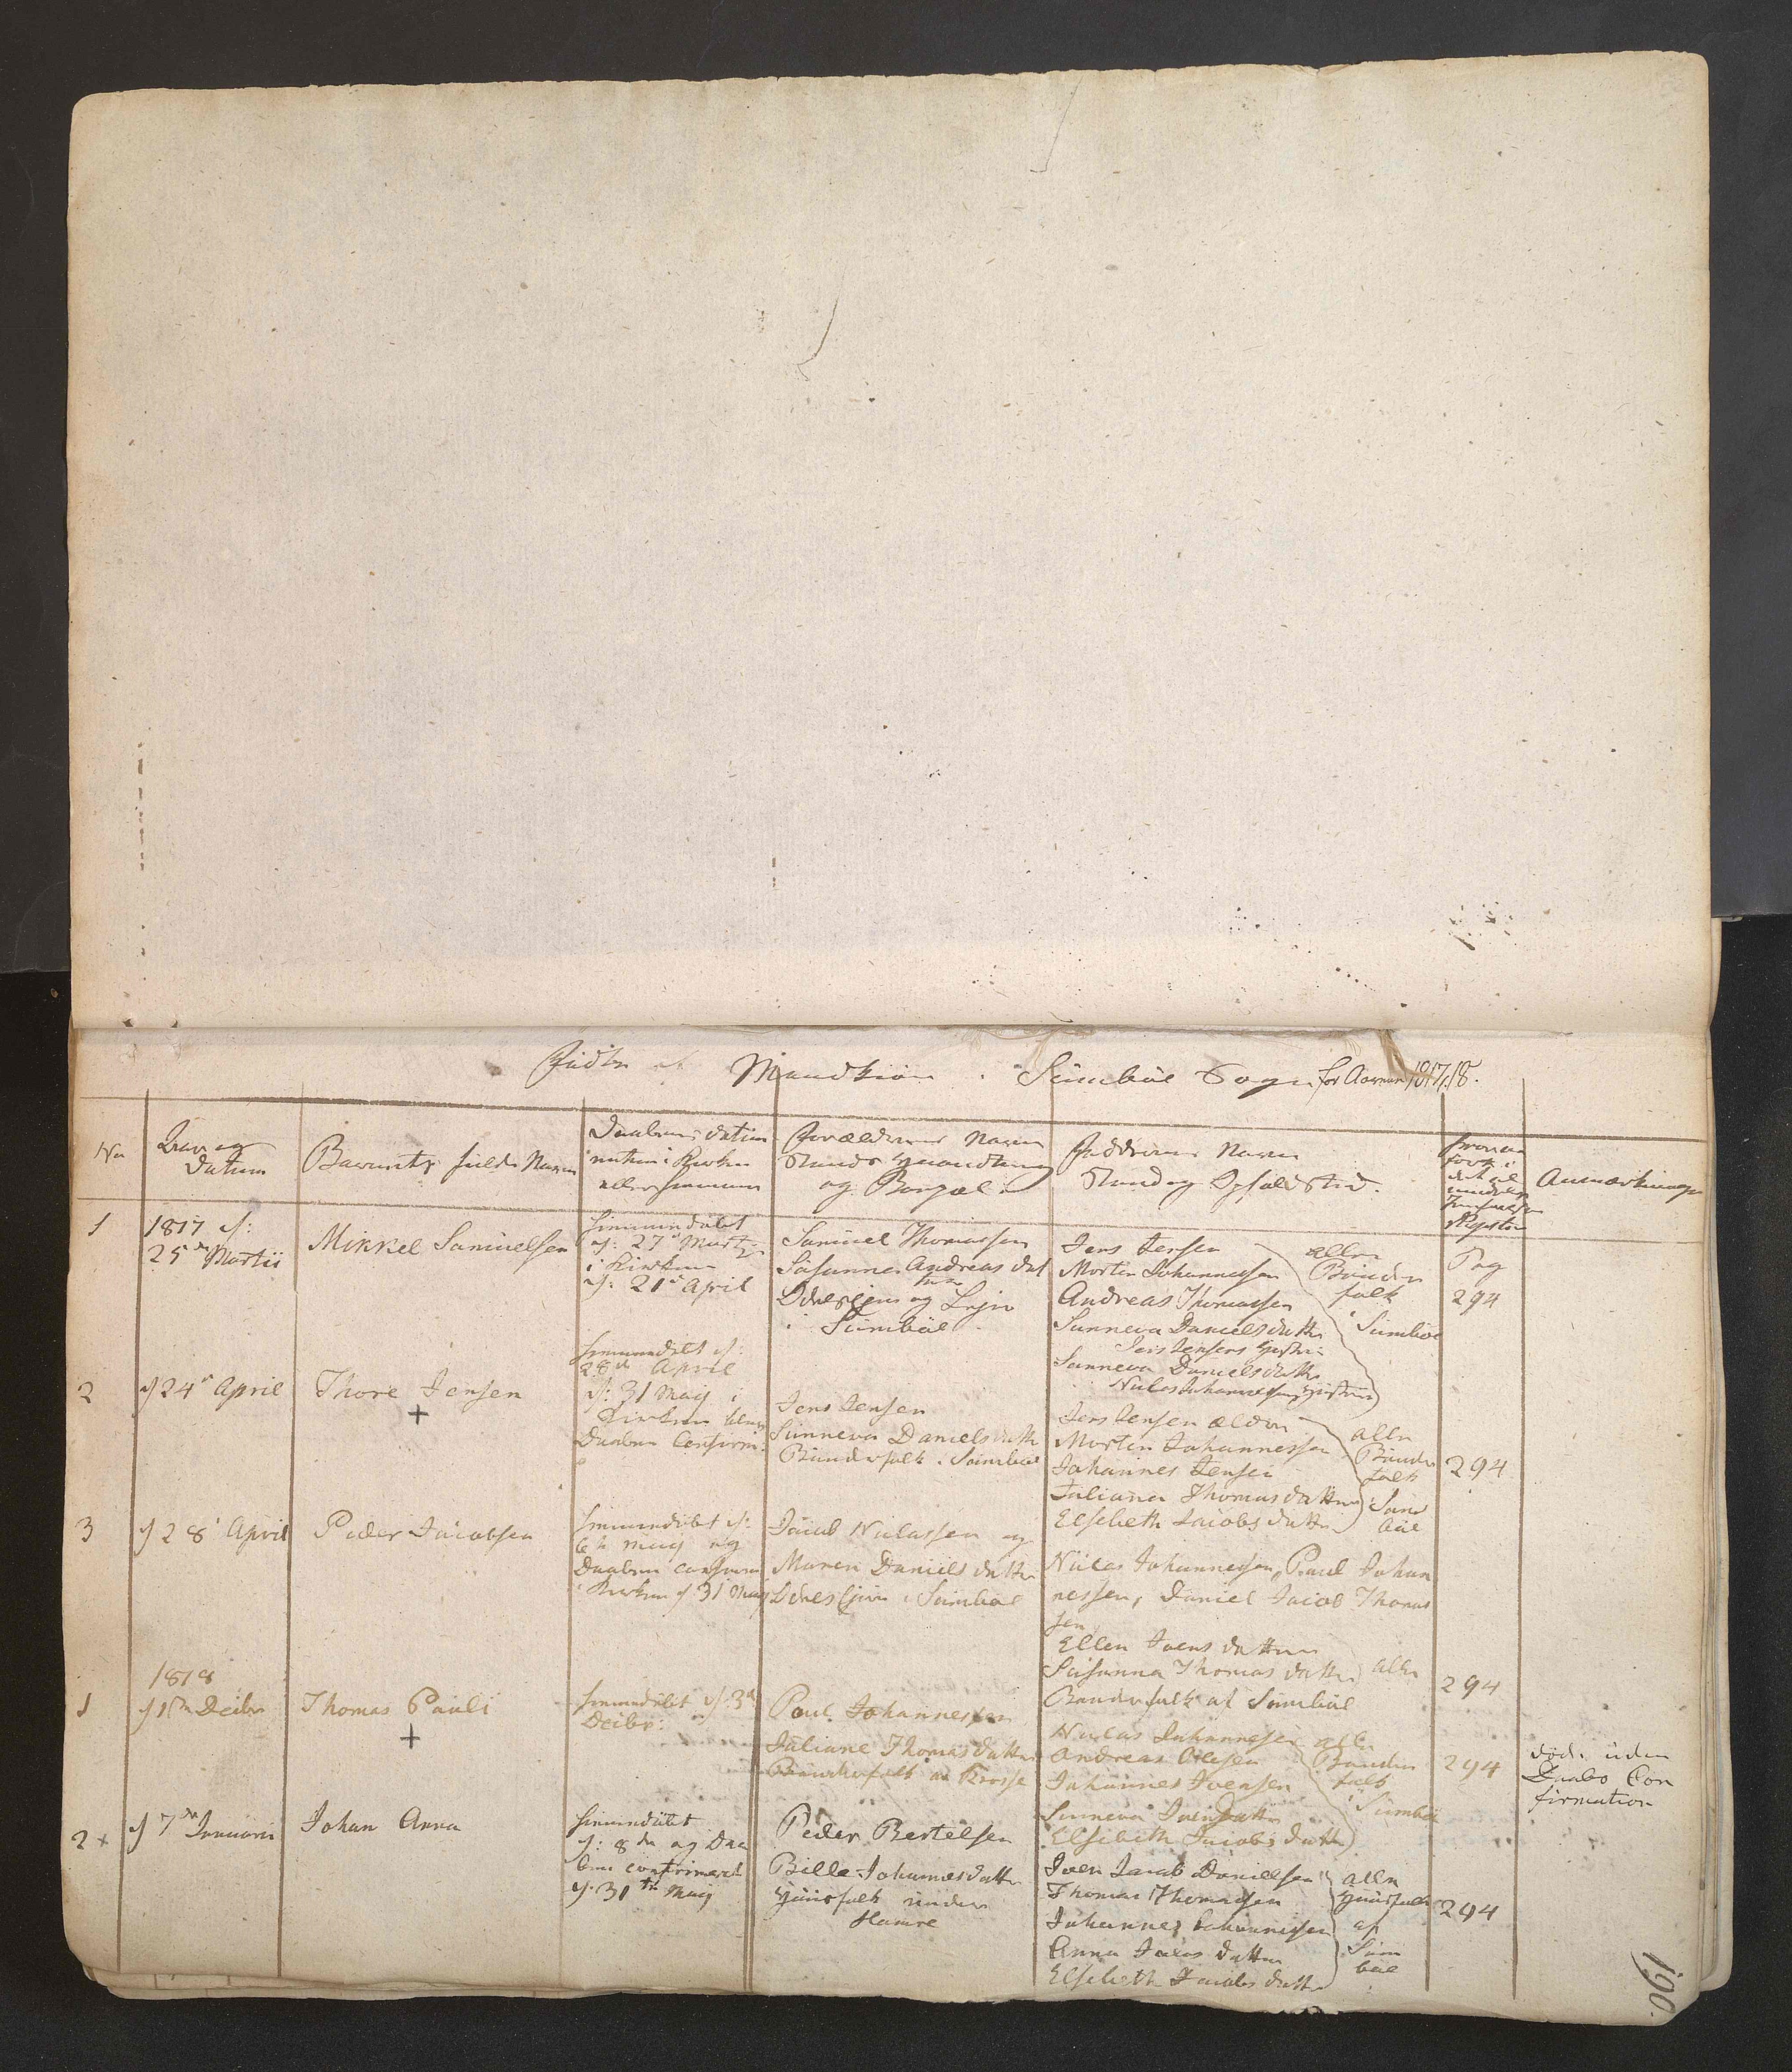 Födte af Mandkiön i Sümböe Sogn for Aarene 1817/18.
No
Aar og
datum
Barnets fulde Navn
Daabens datum
enten i Kirken
eller hiemme
Forældrenes Navn
Stand Haandtering
og Boepæl
Faddrenes Navn
Stand og Opholdsted.
hvor an
fört i
det al
mindelig
Jevnførelses
Register
Anmærkninger
1
1817 d:
25de Martii
Mikkel Samuelsen
hiemmedöbt
d: 27de Martii
i Kirken
d: 21de April
Samuel Thomassen
Süsanne Andreas dat
ter
i Sümböe
Jens Jensen
Morten Johannessen
Andreas Thomassen
Sunneva Danielsdatter
Jens Jensens Hustrue
Sunneva Danielsdatter
Niclas Johannessens Hustrue
alle
Bönder
folk
i Sümböe
Pag
294
2
d 24de April
Thore Jensen
+
hiemmedöbt d:
28de April
d: 31 Maij i
Kirken blev
Daaben Confirm:
Jens Jensen
Sunneva Danielsdatter
Bönderfolk i Sümböe
Jens Jensen ældre
Morten Johannessen
Johannes Jensen
Juliana Thomasdatter
Elsebeth Jacobsdatter
alle
Bönder
folk
i Süm
böe
294
3
d 28de April
Peder Jacobsen
hiemmedöbt d:
6te Maij og
Daaben confirm
i Kirken d 31 Maij
Jacob Niclassen og
Maren Daniels datter
i Sümböe
Niclas Johannessen, Poul Johan
nessen, Daniel Jacob Thomas
sen
Ellen Joens datter
Susanna Thomas datter alle
Bönderfolk af Sümböe
294
1818
1
d 1ste Decbr
Thomas Pauli
+
hiemmedöbt d: 3de
Decbr:
Poul Johannessen
Juliane Thomasdatter
Bönderfolk af Krosse
Niclas Johannessen
Andreas Olesen
Johannes Joensen
Sunneva Joensdatter
Elsebeth Jacobs datter
alle
Bönder
folk
i Sümböe
294
död uden
Daabs Con
firmation
2 +
d 7de Januarii
Johan Anna
hiemmedöbt
d: 8de og Daa
ben confirmeret
d. 31te Maij
Peder Bertelsen
Bille Johannesdatter
Huusfolk under
Hamre
Joen Jacob Danielsen
Thomas Thomassen
Johannes Johannessen
Anna Jacobs datter
Elsebeth Jacobs datter
alle
Huusfolk
af
Süm
böe
294
190.